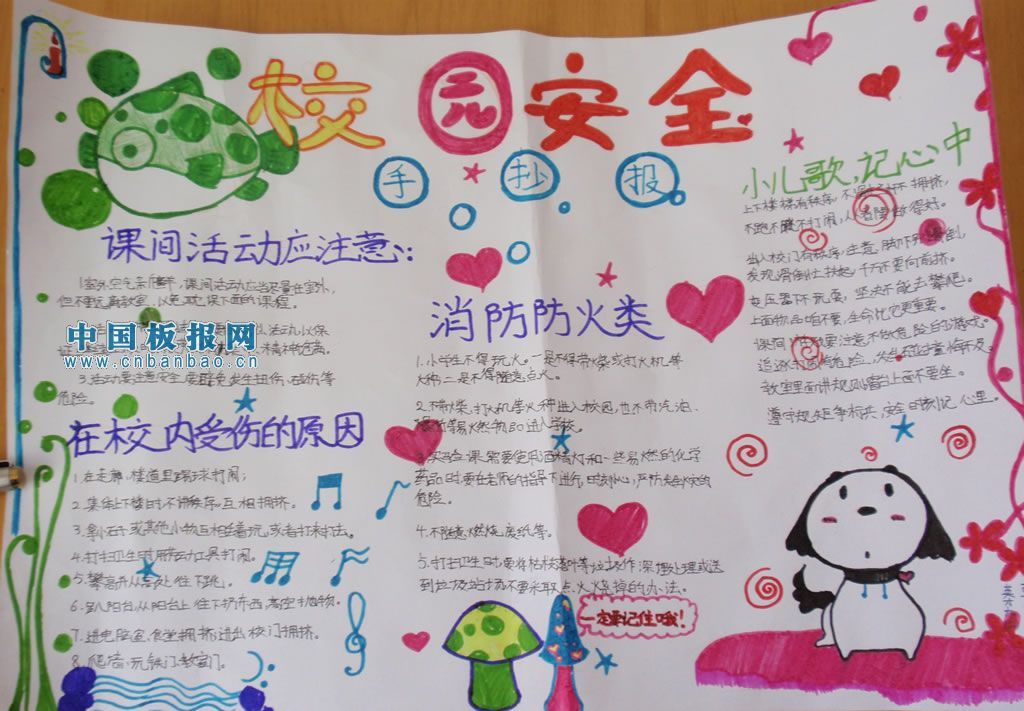 校园安全
手抄报
课间活动应注意:
1.室外空气新鲜,课间活动应当尽量在室外,
但不要远离教室,以免耽误下面的课程。
活动,以保
精神饱满。
3.活动要注意安全,要避免发生扭伤、碰伤等
危险。
中国板报网
www.cnbanbao.cn
在校内受伤的原因
1.在走廊、楼道里踢球打闹;
2.集体上下楼时,不讲秩序,互相拥挤。
3.拿小石子或其他小物互相掷着玩,或者打来打去。
4.打扫卫生时用劳动工具打闹。
5.攀高并从高处往下跳。
6.趴阳台,从阳台上往下扔东西,高空抛物。
7.进电脑室、食堂拥挤,进出校门拥挤。
8.爬墙、玩铁门、教室门。
消防防火类
1.小学生不得玩火。一是不得带火柴或打火机等
火种,二是不得随意点火。
2.不带火柴、打火机等火种进入校园,也不带汽油、
等易燃物品进入学校。
3.实验课需要使用酒精灯和一些易燃的化学
药品时,要在老师的指导下进行,时刻小心,严防发生火灾的
危险。
4.不随意燃烧废纸等。
5.打扫卫生时,要将枯枝落叶等垃圾作深埋处理或送
到垃圾站场,不要采取点火烧掉的办法。
一定要记住哦!
小儿歌,记心中
上下楼梯有秩序,
不跑不跳不打闹,
出入校门有秩序,注意脚下
发现滑倒快扶起,千万不要向前挤。
变压器下不玩耍,坚决不能去攀爬。
上面物品咱不要,生命比它更重要。
课间活动要注意,不做危险的游戏。
教室里面讲规则,
遵守规矩争标兵,安全时刻记心里。